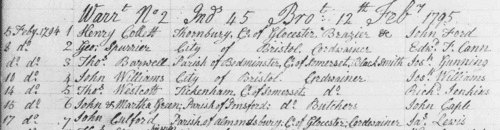 Warrt. No 2 Ind. 45 Brot. 12th Feby 1795
5 Feby. 1794 1 Henry Collett Thornbury, C. of Glocester Brazier & John Ford
8 do. 2 Geo. Spurrier City of Bristol Cordwainer Edwd. T. Cann
do. do. 3 Thos. Barwell Parish of Bedminster, C. of Somerset, Black Smith Jos. Gunning
10 do. 4 John Williams City of Bristol Cordwainer Jos. Williams
14 do. 5 Thos. Westcott Tickenham, C. of Somerset, do. Richd. Jenkins
16 do. 6 John & Martha Green; Parish of Butchers John Cable
17 do. 7 John Parish of Almondsbury; C. of Glocester; Cordwainer Jas. Lewis